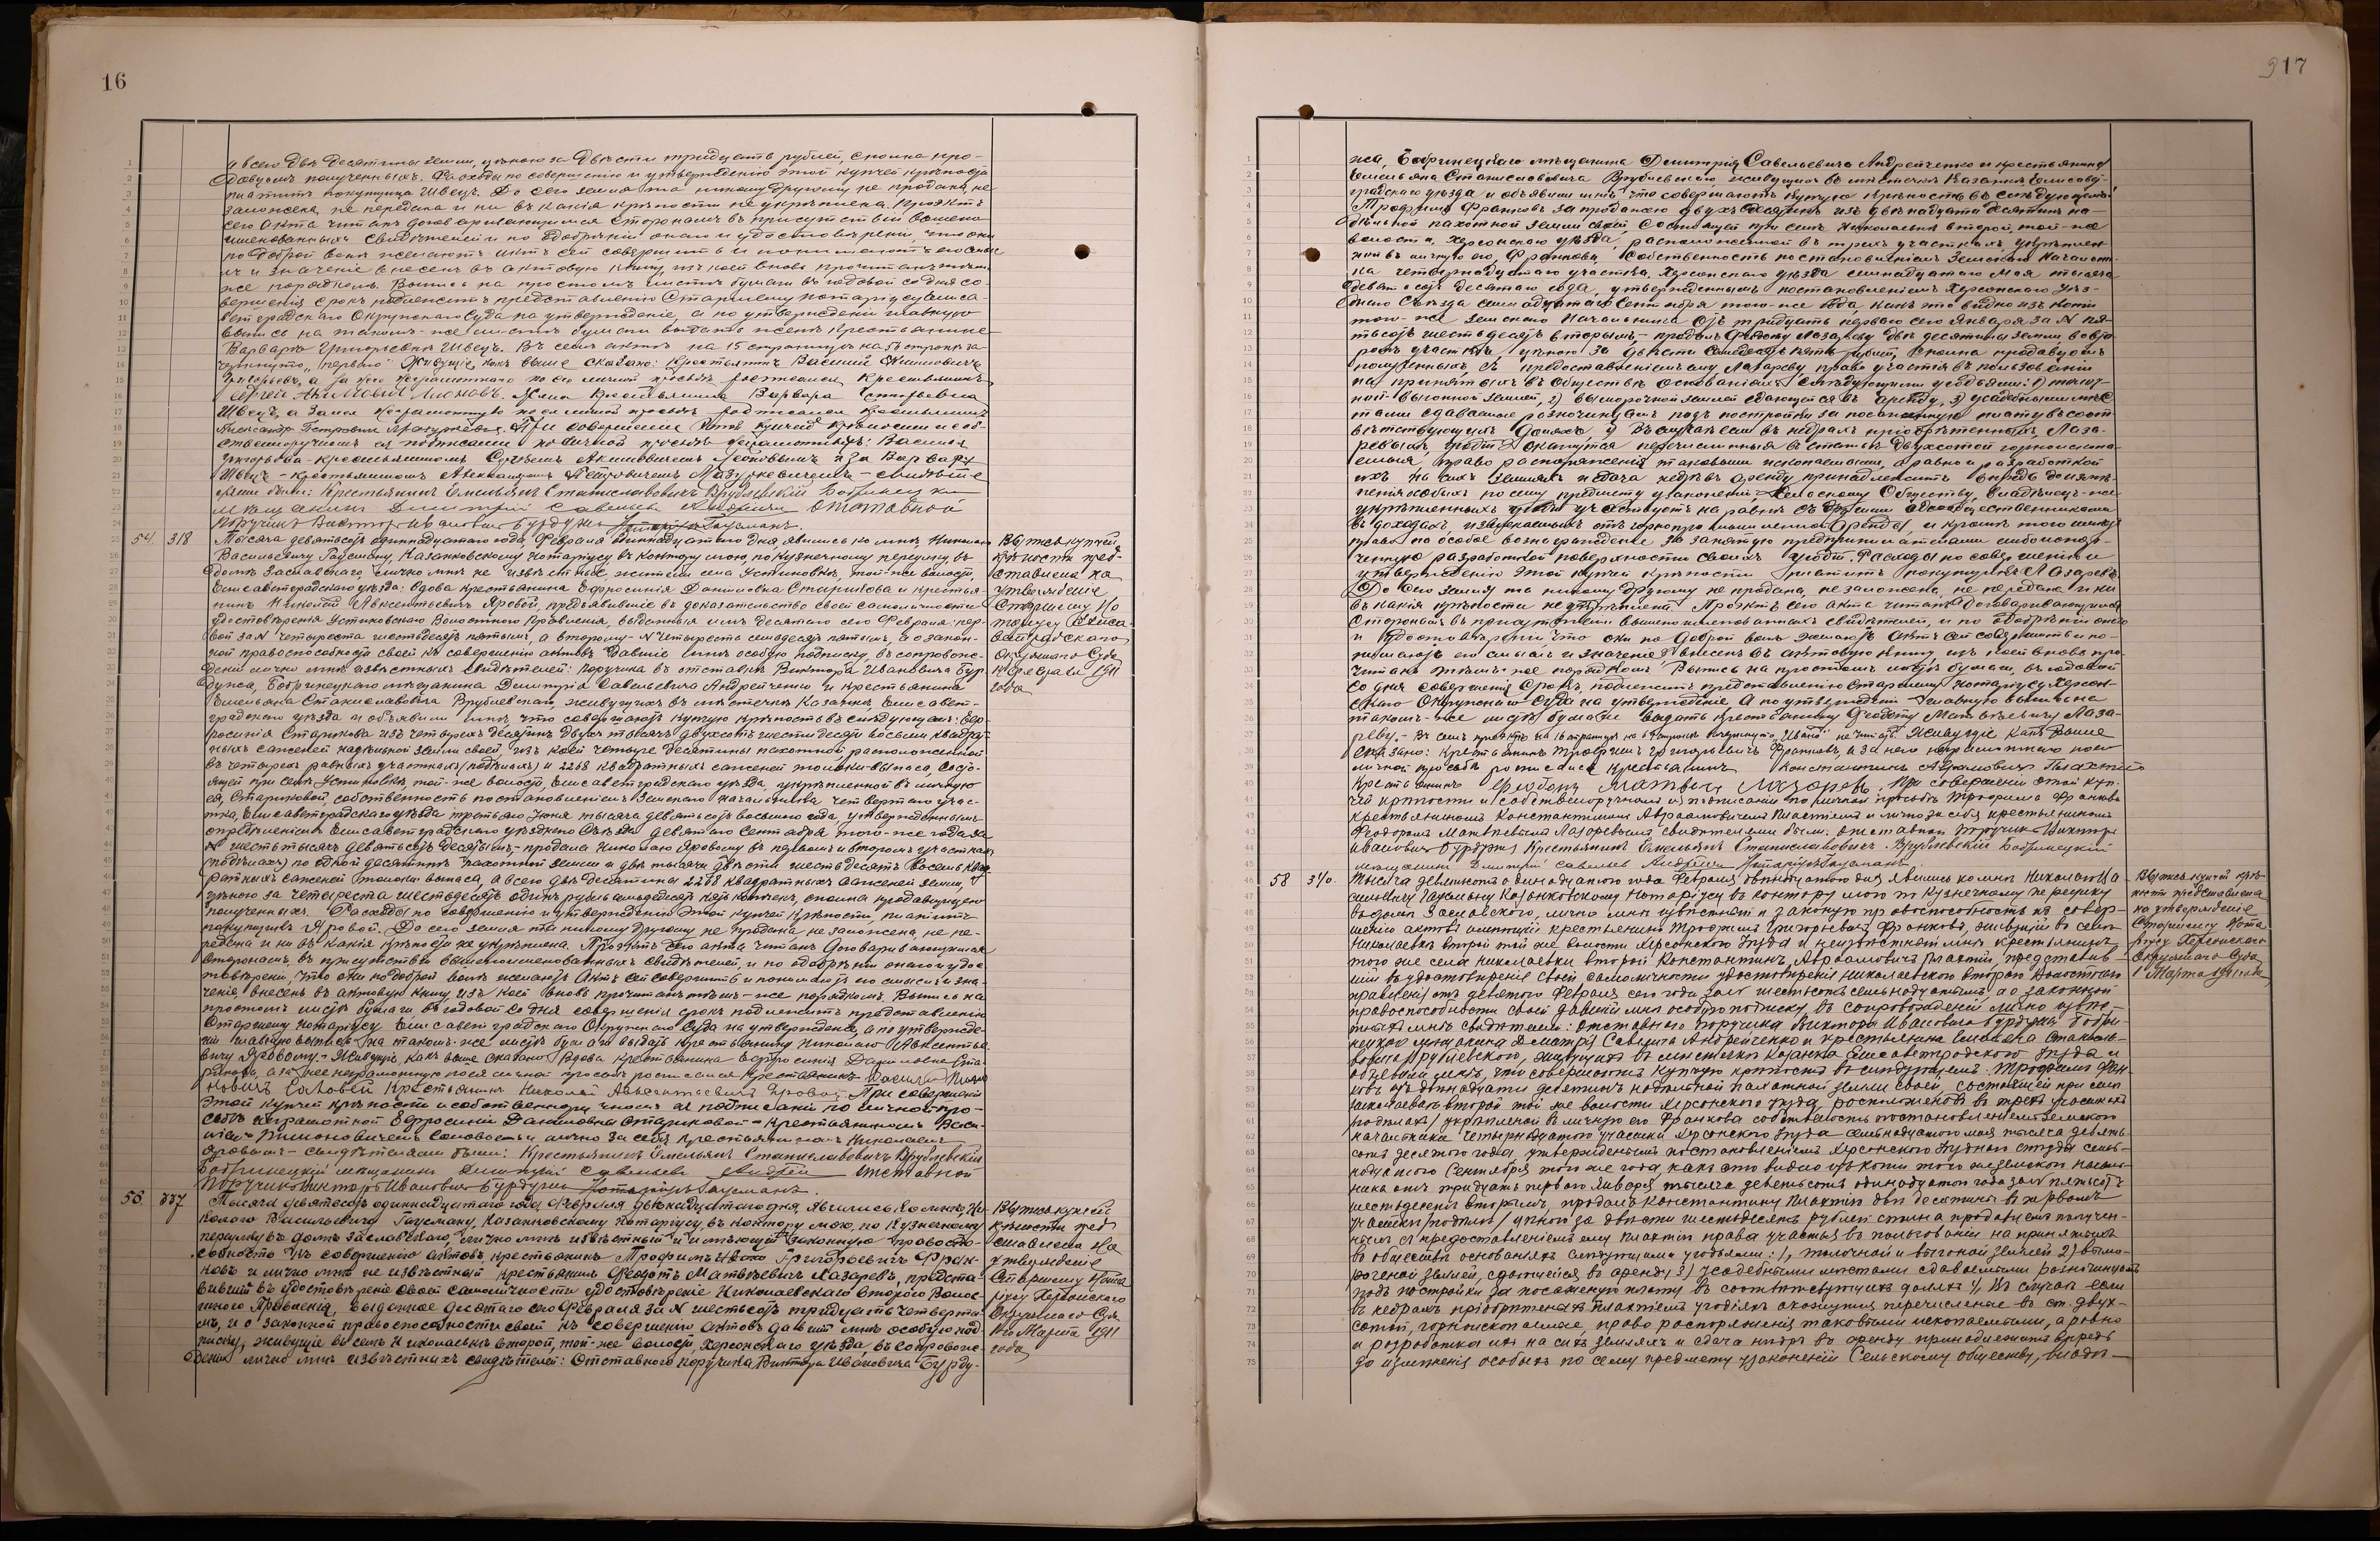 16
а всего двѣ десятины земли, цѣною за двѣсти тридцать рублей, сполна про-
давцомъ полученныхъ. Расходы по совершенію и утвержденію этой купчей крѣпости
платитъ покупщица Швецъ. До сего земля та никому другому не продана, не
заложена, не передана и ни въ какія крѣпости не укрѣплена. Проэктъ
сего акта читанъ договаривающимся сторонамъ въ присутствіи вышепо-
именованныхъ свидѣтелей и по одобреніи онаго и удостовѣреніи, что они
по доброй волѣ желаютъ актъ сей совершить и понимаютъ его смыслъ
и значеніе внесенъ въ актовую книгу, изъ коей вновь прочитанъ тѣмъ-
же порядкомъ. Выпись на простомъ листѣ бумаги въ годовой со дня со-
вершенія срокъ подлежитъ представленію Старшему Нотаріусу Елиса-
ветградскаго Окружнаго Суда на утвержденіе, а по утвержденіи главную
выпись на такомъ-же листѣ бумаги выдать женѣ крестьянина
Варварѣ Григорьевнѣ Швецъ. Въ семъ актѣ на 15 страницѣ на строкѣ за-
черкнуто „перваго“ Живущіе какъ выше сказано: крестьянинъ Василій Акимовичъ
Григорьевъ, а за него неграмотнаго по его личной просьбѣ росписался крестьянинъ
Сергей Акимовичъ Леоновъ. Жена крестьянина Варвара Григорьевна
Швецъ, а за нея неграмотную по ея личной просьбѣ росписался крестьянинъ
Александръ Петровичъ Мазуркевичъ. При совершеніи этой купчей крѣпости и соб-
ственноручномъ ея подписаніи по личной просьбѣ неграмотныхъ: Василія
Григорьева - крестьяниномъ Сергѣемъ Акимовичемъ Леоновымъ и за Варвару
Швецъ - крестьяниномъ Александромъ Петровичемъ Мазуркевичемъ - свидѣте-
лями были: Крестьянинъ Емельянъ Станиславовичъ Врублевскій Бобринецкій
мещанинъ Дмитрій Савельевъ Андрейченко Отставной
Поручикъ Викторъ Ивановичъ Бурдужа Нотаріусъ Гаусманъ.
54 318 Тысяча девятьсотъ одиннадцатаго года, Февраля одиннадцатаго дня, явились ко мнѣ, Николаю
Васильевичу Гаусману, Казанковскому Нотаріусу, въ контору мою, по Кузнечному переулку, въ
домѣ Заславскаго, лично мнѣ не извѣстные, жители села Устиновки, той-же волости,
Елисаветградскаго уѣзда: вдова крестьянина Ефросинія Даниловна Старикова и крестья-
нинъ Николай Авксентьевичъ Яровой, предъявившіе въ доказательство своей самоличности
удостовѣренія Устиновскаго Волостного Правленія, выданныя имъ десятаго сего Февраля: пер-
вой за N четыреста шестьдесятъ пятымъ, а второму - N четыреста семьдесятъ пятымъ, а о закон-
ной правоспособности своей къ совершенію актовъ давшіе мнѣ особую подписку, въ сопровож-
деніи лично мнѣ извѣстныхъ свидѣтелей: поручика въ отставкѣ Виктора Ивановича Бур-
дужа, Бобринецкаго мѣщанина Дмитрія Савельевича Андрейченко и крестьянина
Емельяна Станиславовича Врублевскаго, живущихъ въ мѣстечкѣ Казанкѣ, Елисавет-
градскаго уѣзда и объявили мнѣ, что совершаютъ купчую крѣпость въ слѣдующемъ: Ефр-
росинія Старикова изъ четырехъ десятинъ двухъ тысячъ двухсотъ шестидесяти восьми квадрат-
ныхъ саженей надѣльной земли своей, изъ коей четыре десятины пахотной, расположенной
въ четырехъ разныхъ участкахъ (подѣлахъ) и 2268 квадратныхъ саженей толоки-выпаса, состо-
ящей при селѣ Устиновкѣ, той-же волости, Елисаветградскаго уѣзда, укрѣпленной въ личную
ея, Стариковой, собственность постановленіемъ Земскаго Начальника четвертаго учас-
тка, Елисаветградскаго уѣзда третьяго Іюня тысяча девятьсотъ восьмого года, утвержденнымъ
опредѣленіемъ Елисаветградскаго уѣзднаго Съѣзда девятаго Сентября того-же года за
N шесть тысячъ девятьсотъ десятымъ, - продала Николаю Яровому въ первомъ и второмъ участкахъ
(подѣлахъ) по одной десятинѣ пахотной земли и двѣ тысячи двѣсти шестьдесятъ восемь квад-
ратныхъ саженей толоки выпаса, а всего двѣ десятины 2268 квадратныхъ саженей земли,
цѣною за четыреста шестьдесятъ одинъ рубль семьдесятъ пять копѣекъ, сполна продавицею
полученныхъ. Расходы по совершенію и утвержденію этой купчей крѣпости, платитъ
покупщикъ Яровой. До сего земля та никому другому не продана, не заложена, не пе-
редана и ни въ какія крѣпости не укрѣплена. Проэктъ сего акта читанъ договаривающимся
сторонамъ, въ присутствіи вышепоименованныхъ свидѣтелей, и по одобреніи онаго и удос-
товѣреніи, что они по доброй волѣ желаютъ актъ сей совершить и понимаютъ его смыслъ и зна-
ченіе, внесенъ въ актовую книгу, изъ коей вновь прочитанъ тѣмъ-же порядкомъ. Выпись на
простомъ листѣ бумаги, въ годовой со дня совершенія срокъ подлежитъ представленію
Старшему Нотаріусу Елисаветградскаго Окружнаго Суда на утвержденіе, а по утвержде-
ніи главную выпись на такомъ-же листѣ бумаги выдать крестьянину Николаю Авксентье-
вичу Яровому. - Живущіе какъ выше сказано: Вдова крестьянина Ефросинія Даниловна Ста-
рикова, а за нее неграмотную по ея личной просьбѣ росписался крестьянинъ Василій
Соловей Крестьянинъ Николай Авксентьевичъ Яровой. При совершеніи
этой купчей крѣпости и собственноручномъ ея подписаніи по личной про-
сьбѣ неграмотной Ефросиніи Даниловны Стариковой - крестьяниномъ Васи-
ліемъ Соловьемъ и лично за себя крестьяниномъ Николаемъ
Яровымъ - свидѣтелями были: Крестьянинъ Емельянъ Станиславовичъ Врублевскій
Бобринецкій мещанинъ Дмитрій Савельевъ Андрейченко Отставной
Поручикъ Викторъ Ивановичъ Бурдужа Нотаріусъ Гаусманъ.
Выпись купчей
крѣпости пред-
ставлена на
утвержденіе
Старшему Но-
таріусу Елиса-
ветградскаго
Окружнаго Суда
Февраля 1911
года
56 337 Тысяча девятьсотъ одиннадцатаго года, Февраля двѣнадцатаго дня, явились ко мнѣ, Ни-
колаю Васильевичу Гаусману, Казанковскому Нотаріусу, въ контору мою, по Кузнечному
переулку въ домѣ Заславскаго, лично мнѣ извѣстный и имѣющій законную правоспо-
собность къ совершенію актовъ, крестьянинъ Трофимъ Григорьевичъ Фран-
ковъ и лично мнѣ не извѣстный крестьянинъ Ѳеодотъ Матвѣевичъ Лазаревъ, предста-
вившій въ удостовѣреніе своей самоличности удостовѣреніе Николаевскаго второго Волос-
тного Правленія, выданное десятаго сего Февраля за N шестьсотъ тридцать четверты-
мъ, и о законной правоспособности своей къ совершенію актовъ давшій мнѣ особую под-
писку, живущіе въ селѣ Николаевкѣ второй, той-же волости, Херсонскаго уѣзда, въ сопровож-
деніи лично мнѣ извѣстныхъ свидѣтелей: Отставного поручика Виктора Ивановича Бурду-
Выпись купчей
крѣпости пред-
ставлена на
утвержденіе
Старшему Нота-
ріусу Херсонскаго
Окружнаго Суда
1-го Марта 1911
года
917
жа, Бобринецкаго мѣщанина Дмитрія Савельевича Андрейченко и крестьянина
Емельяна Станиславовича Врублевскаго, живущихъ въ мѣстечкѣ Казанкѣ, Елисавет-
градскаго уѣзда и объявили мнѣ, что совершаютъ купчую крѣпость въ слѣдующемъ:
Трофимъ Франковъ за продажею двухъ десятинъ изъ двѣнадцати десятинъ на-
дѣльной пахотной земли своей, состоящей при селѣ Николаевкѣ второй, той-же
волости, Херсонскаго уѣзда, расположенной въ трехъ участкахъ, укрѣплен-
ной въ личную его, Франкова, собственность постановленіемъ Земскаго Начальни-
ка четырнадцатаго участка, Херсонскаго уѣзда семнадцатаго Мая тысяча
девятьсотъ десятаго года, утвержденнымъ постановленіемъ Херсонскаго уѣз-
днаго Съѣзда семнадцатаго Сентября того-же года, какъ это видно изъ копіи
того-же Земскаго Начальника отъ тридцать перваго сего Января за N пя-
тьсотъ шестьдесятъ вторымъ, - продалъ Ѳеодоту Лазареву двѣ десятины земли во вто-
ромъ участкѣ цѣною за двѣсти семьдесятъ пять рублей, сполна продавцомъ
полученныхъ, съ предоставленіемъ ему Лазареву, права участія въ пользованіи
на принятыхъ въ обществѣ основаніяхъ слѣдующими угодьями: 1) толоч-
ной-выгонной землей, 2) выморочной землей сдающейся въ аренду, 3) усадебными мѣс-
тами сдаваемыми разночинцамъ подъ постройки за посаженную плату въ соот-
вѣтствующихъ доляхъ 4) Въ случаѣ если въ нѣдрахъ пріобрѣтенныхъ, Лаза-
ревымъ, угодій окажутся перечисленныя въ статьѣ двухсотой горныископа-
емыя, право распоряженія таковыми ископаемыми, а равно и разработкой
ихъ на сихъ земляхъ и сдача нѣдръ въ аренду принадлежитъ впредь до измѣ-
ненія особыхъ по сему предмету узаконеній, - Сельскому Обществу, владѣлецъ-же
укрѣпленныхъ угодій участвуетъ на равнѣ съ другими однообщественниками
въ доходахъ извлекаемыхъ отъ горнопромышленной аренды и кромѣ того имѣетъ
право на особое вознагражденіе за занятую предпринимателями либо испор-
ченную разработкой поверхности своихъ угодій. Расходы по совершенію и
утвержденію этой купчей крѣпости платитъ покупщикъ Лазаревъ.
До сего земля та никому другому не продана, не заложена, не передана и ни
въ какія крѣпости не укрѣплена. Проэктъ сего акта читанъ договаривающимся
сторонамъ въ присутствіи вышепоименованныхъ свидѣтелей, и по одобреніи онаго
и удостовѣреніи что они по доброй волѣ желаютъ актъ сей совершить и по-
нимаютъ его смыслъ и значеніе внесенъ въ актовую книгу, изъ коей вновь про-
читанъ тѣмъ-же порядкомъ. Выпись на простомъ листѣ бумаги, въ годовой
со дня совершенія срокъ, подлежитъ представленію Старшему Нотаріусу Херсон-
скаго Окружнаго Суда на утвержденіе, а по утвержденіи главную выпись на
такомъ-же листѣ бумаги выдать крестьянину Ѳеодоту Матвѣевичу Лаза-
реву. - Въ семъ проэктѣ на 16 страницѣ на строкѣ зачеркнуто „Ивано“ не читать. Живущіе какъ выше
сказано: Крестьянинъ Трофимъ Григорьевичъ Франковъ, а за него неграмотнаго по его
личной просьбѣ росписался крестьянинъ Константинъ Абрамовичъ Плахтій
Крестьянинъ Ѳеодотъ Матвѣевъ Лазаревъ. При совершеніи этой куп-
чей крѣпости и собственноручномъ ея подписаніи по личной просьбѣ Трофима Франкова
крестьяниномъ Константиномъ Авраамовичемъ Плахтіемъ и лично за себя крестьяниномъ
Ѳеодотомъ Матвѣевичемъ Лазаревымъ свидѣтелями были: Отставной Поручикъ Викторъ
Ивановичъ Бурдужа Крестьянинъ Емельянъ Станиславовичъ Врублевскій Бобринецкій
мещанинъ Дмитрій Савельевъ Андрейченко Нотаріусъ Гаусманъ.
58 340. Тысяча девятьсотъ одинадцатаго года Февраля двѣнадцатаго дня явились ко мнѣ Николаю Ва-
сильевичу Гаусману Казанковскому Нотаріусу въ контору мою по Кузнечному переулку
въ домѣ Заславскаго, лично мнѣ извѣстный и законную правоспособность къ совер-
шенію актовъ имѣющій крестьянинъ Трофимъ Григорьевичъ Франковъ, живущій въ селѣ
Николаевкѣ второй той же волости Херсонскаго уѣзда и неизвѣстный мнѣ крестьянинъ
того же села Николаевки второй Константинъ Авраамовичъ Плахтій, представив-
шій въ удостовѣреніе своей самоличности удостовѣреніе Николаевскаго второго Волостного
правленія отъ девятаго Февраля сего года за N шестьсотъ семнадцатымъ, а о законной
правоспособности своей давшій мнѣ особую подписку, въ сопровожденіи лично извѣ-
стныхъ мнѣ свидѣтелей: отставного поручика Виктора Ивановича Бурдужи Бобри-
нецкаго мѣщанина Дмитрія Савельевича Андрейченко и крестьянина Емельяна Станисла-
вовича Врублевскаго, живущихъ въ мѣстечкѣ Казанкѣ Елисаветградскаго уѣзда и
объявили мнѣ, что совершаютъ купчую крѣпость въ слѣдующемъ: Трофимъ Фран-
ковъ изъ двѣнадцати десятинъ надѣльной пахотной земли своей, состоящей при селѣ
Николаевкѣ второй той же волости Херсонскаго уѣзда расположенной въ трехъ участкахъ
/подѣлахъ/ укрѣпленной въ личную его Франкова собственность постановленіемъ Земскаго
Начальника четырнадцатаго участка Херсонскаго уѣзда семнадцатаго мая тысяча девять-
сотъ десятаго года, утвержденнымъ постановленіемъ Херсонскаго Уѣзднаго Съѣзда сем-
надцатаго Сентября того же года, какъ это видно изъ копіи того же Земскаго Началь-
ника отъ тридцать перваго Января тысяча девятьсотъ одинадцатаго года за N пятьсотъ
шестьдесятъ вторымъ, продалъ Константину Плахтію двѣ десятины въ первомъ
участкѣ /подѣлѣ/ цѣною за двѣсти шестьдесятъ рублей сполна продавцомъ получен-
ныхъ съ предоставленіемъ ему Плахтію права участія въ пользованіи на принятыхъ
въ обществѣ основаніяхъ слѣдующими угодьями: 1, толочной и выгонной землей 2) вымо-
рочной землей, сдающейся въ аренду 3) усадебными мѣстами сдаваемыми разночинцамъ
подъ постройки за посаженную плату въ соотвѣтствующихъ доляхъ 4, Въ случаѣ если
въ нѣдрахъ пріобрѣтенныхъ Плахтіемъ угодіяхъ окажутся перечисленные въ ст. двух-
сотой, горныископаемые, право распоряженія таковыми ископаемыми, а равно
и разработка ихъ на сихъ земляхъ и сдача нѣдръ въ аренду принадлежитъ впредь
до измѣненія особыхъ по сему предмету узаконеній Сельскому обществу, владѣ-
Выпись купчей крѣ-
пости представлена
на утвержденіе
Старшему Нота-
ріусу Херсонскаго
Окружнаго Суда
1 Марта 1911 года